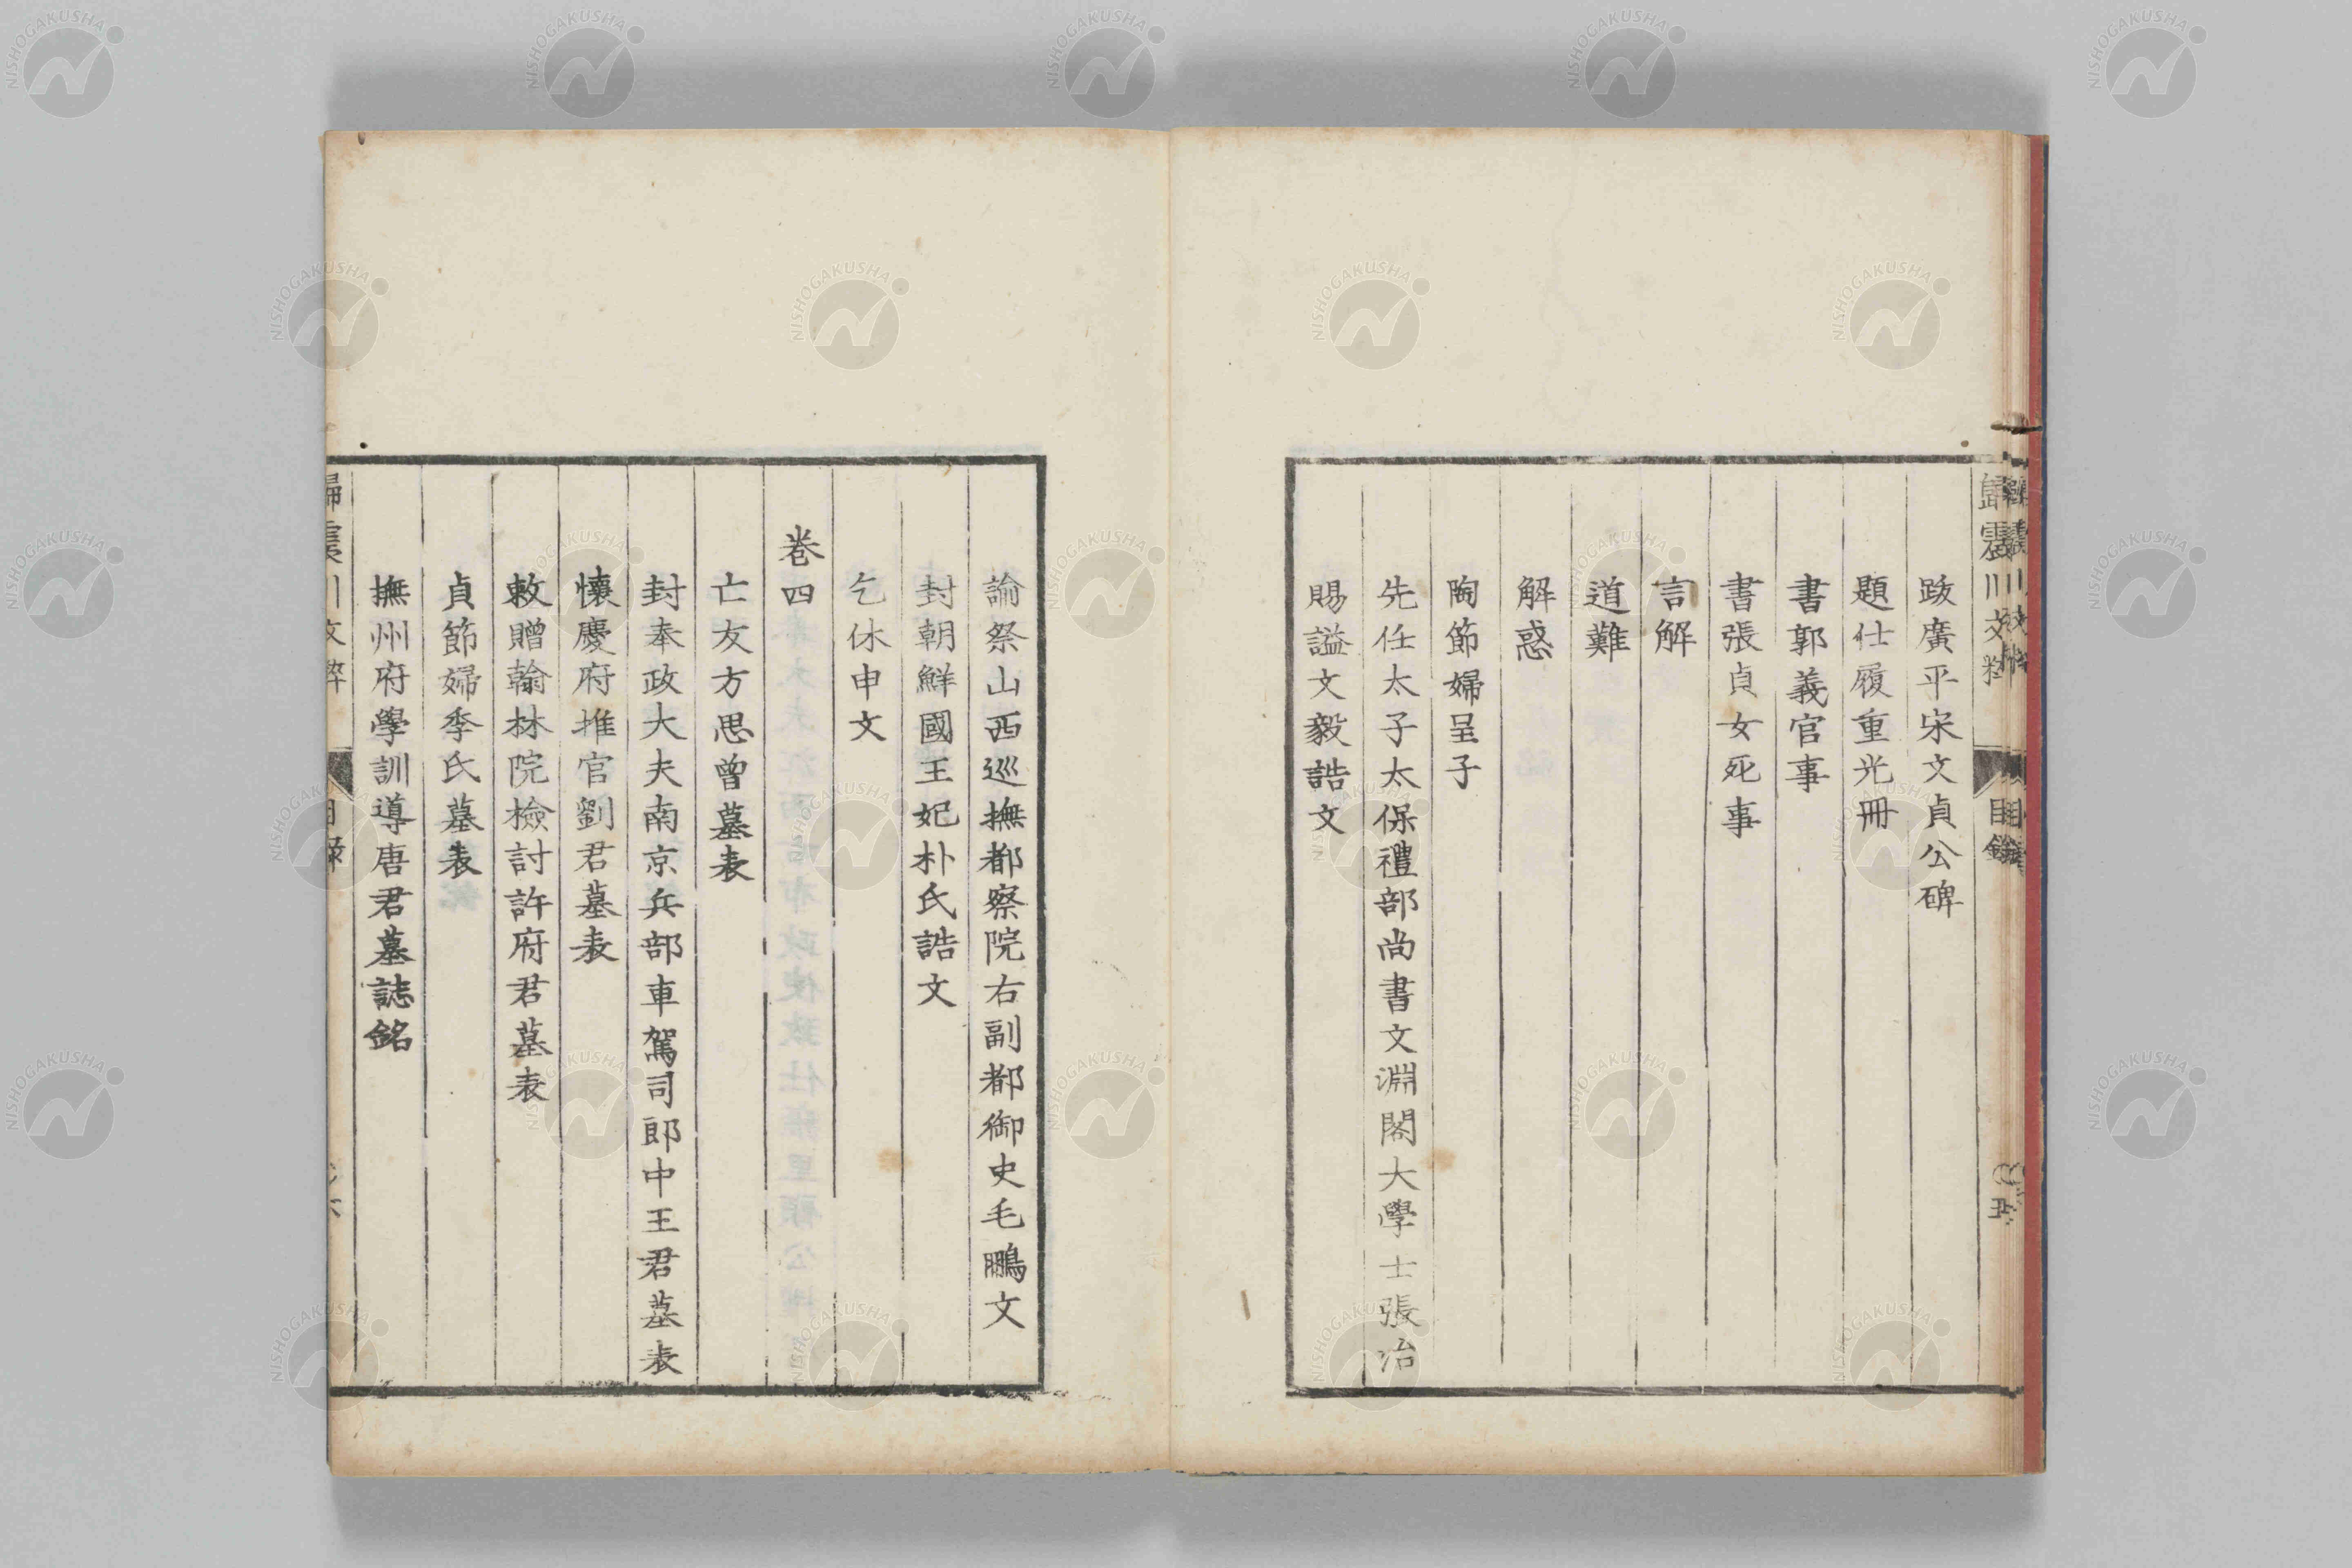 歸震川文粹 目錄 五
跋廣平宋文貞公碑
題仕履重光冊
書郭義官事
書張貞女死事
言解
道難
解惑
陶節婦呈子
先任太子太保禮部尚書文淵閣大學士張治
賜謚文毅誥文
諭祭山西巡撫都察院右副都御史毛鵬文
封朝鮮國王妃朴氏誥文
乞休申文
卷四
亡友方思曾墓表
封奉政大夫南京兵部車駕司郎中王君墓表
懷慶府推官劉君墓表
敕贈翰林院檢討許府君墓表
貞節婦李氏墓表
撫州府學訓導唐君墓誌銘
歸震川文粹 目錄 六
NISHOGAKUSHA